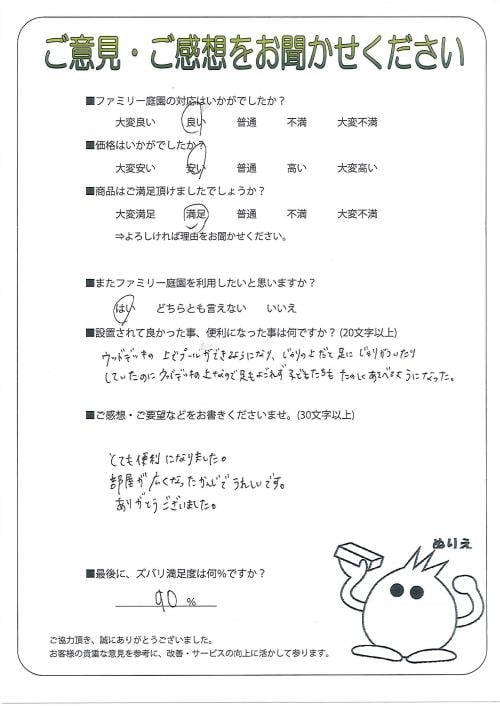 ご意見・ご感想をお聞かせください
■ファミリー庭園の対応はいかがでしたか？
大変良い 良い 普通 不満 大変不満
■価格はいかがでしたか？
大変安い 安い 普通 高い 大変高い
■商品はご満足頂けましたでしょうか？
大変満足 満足 普通 不満 大変不満
⇒よろしければ理由をお聞かせください。
■またファミリー庭園を利用したいと思いますか？
はい どちらとも言えない いいえ
■設置されて良かった事、便利になった事は何ですか？(20文字以上)
ウッドデッキの上でプールができるようになり、じゃりの上だと足にじゃりがついたり
していたのにウッドデッキの上なので足もよごれず子どもたちもたのしくあそべるようになった。
■ご感想・ご要望などをお書きくださいませ。(30文字以上)
とても便利になりました。
部屋が広くなったかんじでうれしいです。
ありがとうございました。
ぬりえ
■最後に、ズバリ満足度は何%ですか？
90 %
ご協力頂き、誠にありがとうございました。
お客様の貴重な意見を参考に、改善・サービスの向上に活かして参ります。